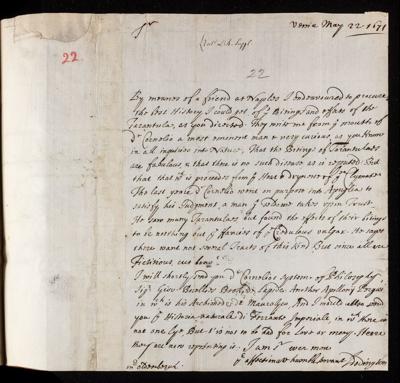 Sr
Venice May 22. 1671
22
22
By meanes of a friend at Naples I endeavoured to procure
the best History I could get of ye Bitings and effects of the
Tarantula, as you directed. They write me from ye mouth of
Dr Cornelio a most eminent man & very curious, as you know
in all inquiries into Nature, That the Bitings of Tarantulas
are fabulous, & that there is no such disease as is reported. But
that that wch is proceeds from ye Heat & drynes of ye Clymate
The last yeare Dr Cornelio went on purpose into Apuglia to
satisfy his Judgment, a man yt seldome takes upon Trust.
He saw many Tarantulas but found the effects of their bitings
to be nothing but ye fancies of ye Credulous vulgar. He says
there want not severall Tracts of this kind. But since all are
fictitious,
I will shortly send you Dr Cornelios Systeme of Philosophy
Another Apollonij Pergei
in wch is his Archimedes Maurolyci, And I would allso send
you ye Historia naturale di Ferrante Imperiale, in wch there is
not one lye. But it is not to be had for Love or mony. Heere
they are now reprinting it. I am Sr ever more
ye affectionat humble servant Dodington
mr Oldenburgh.